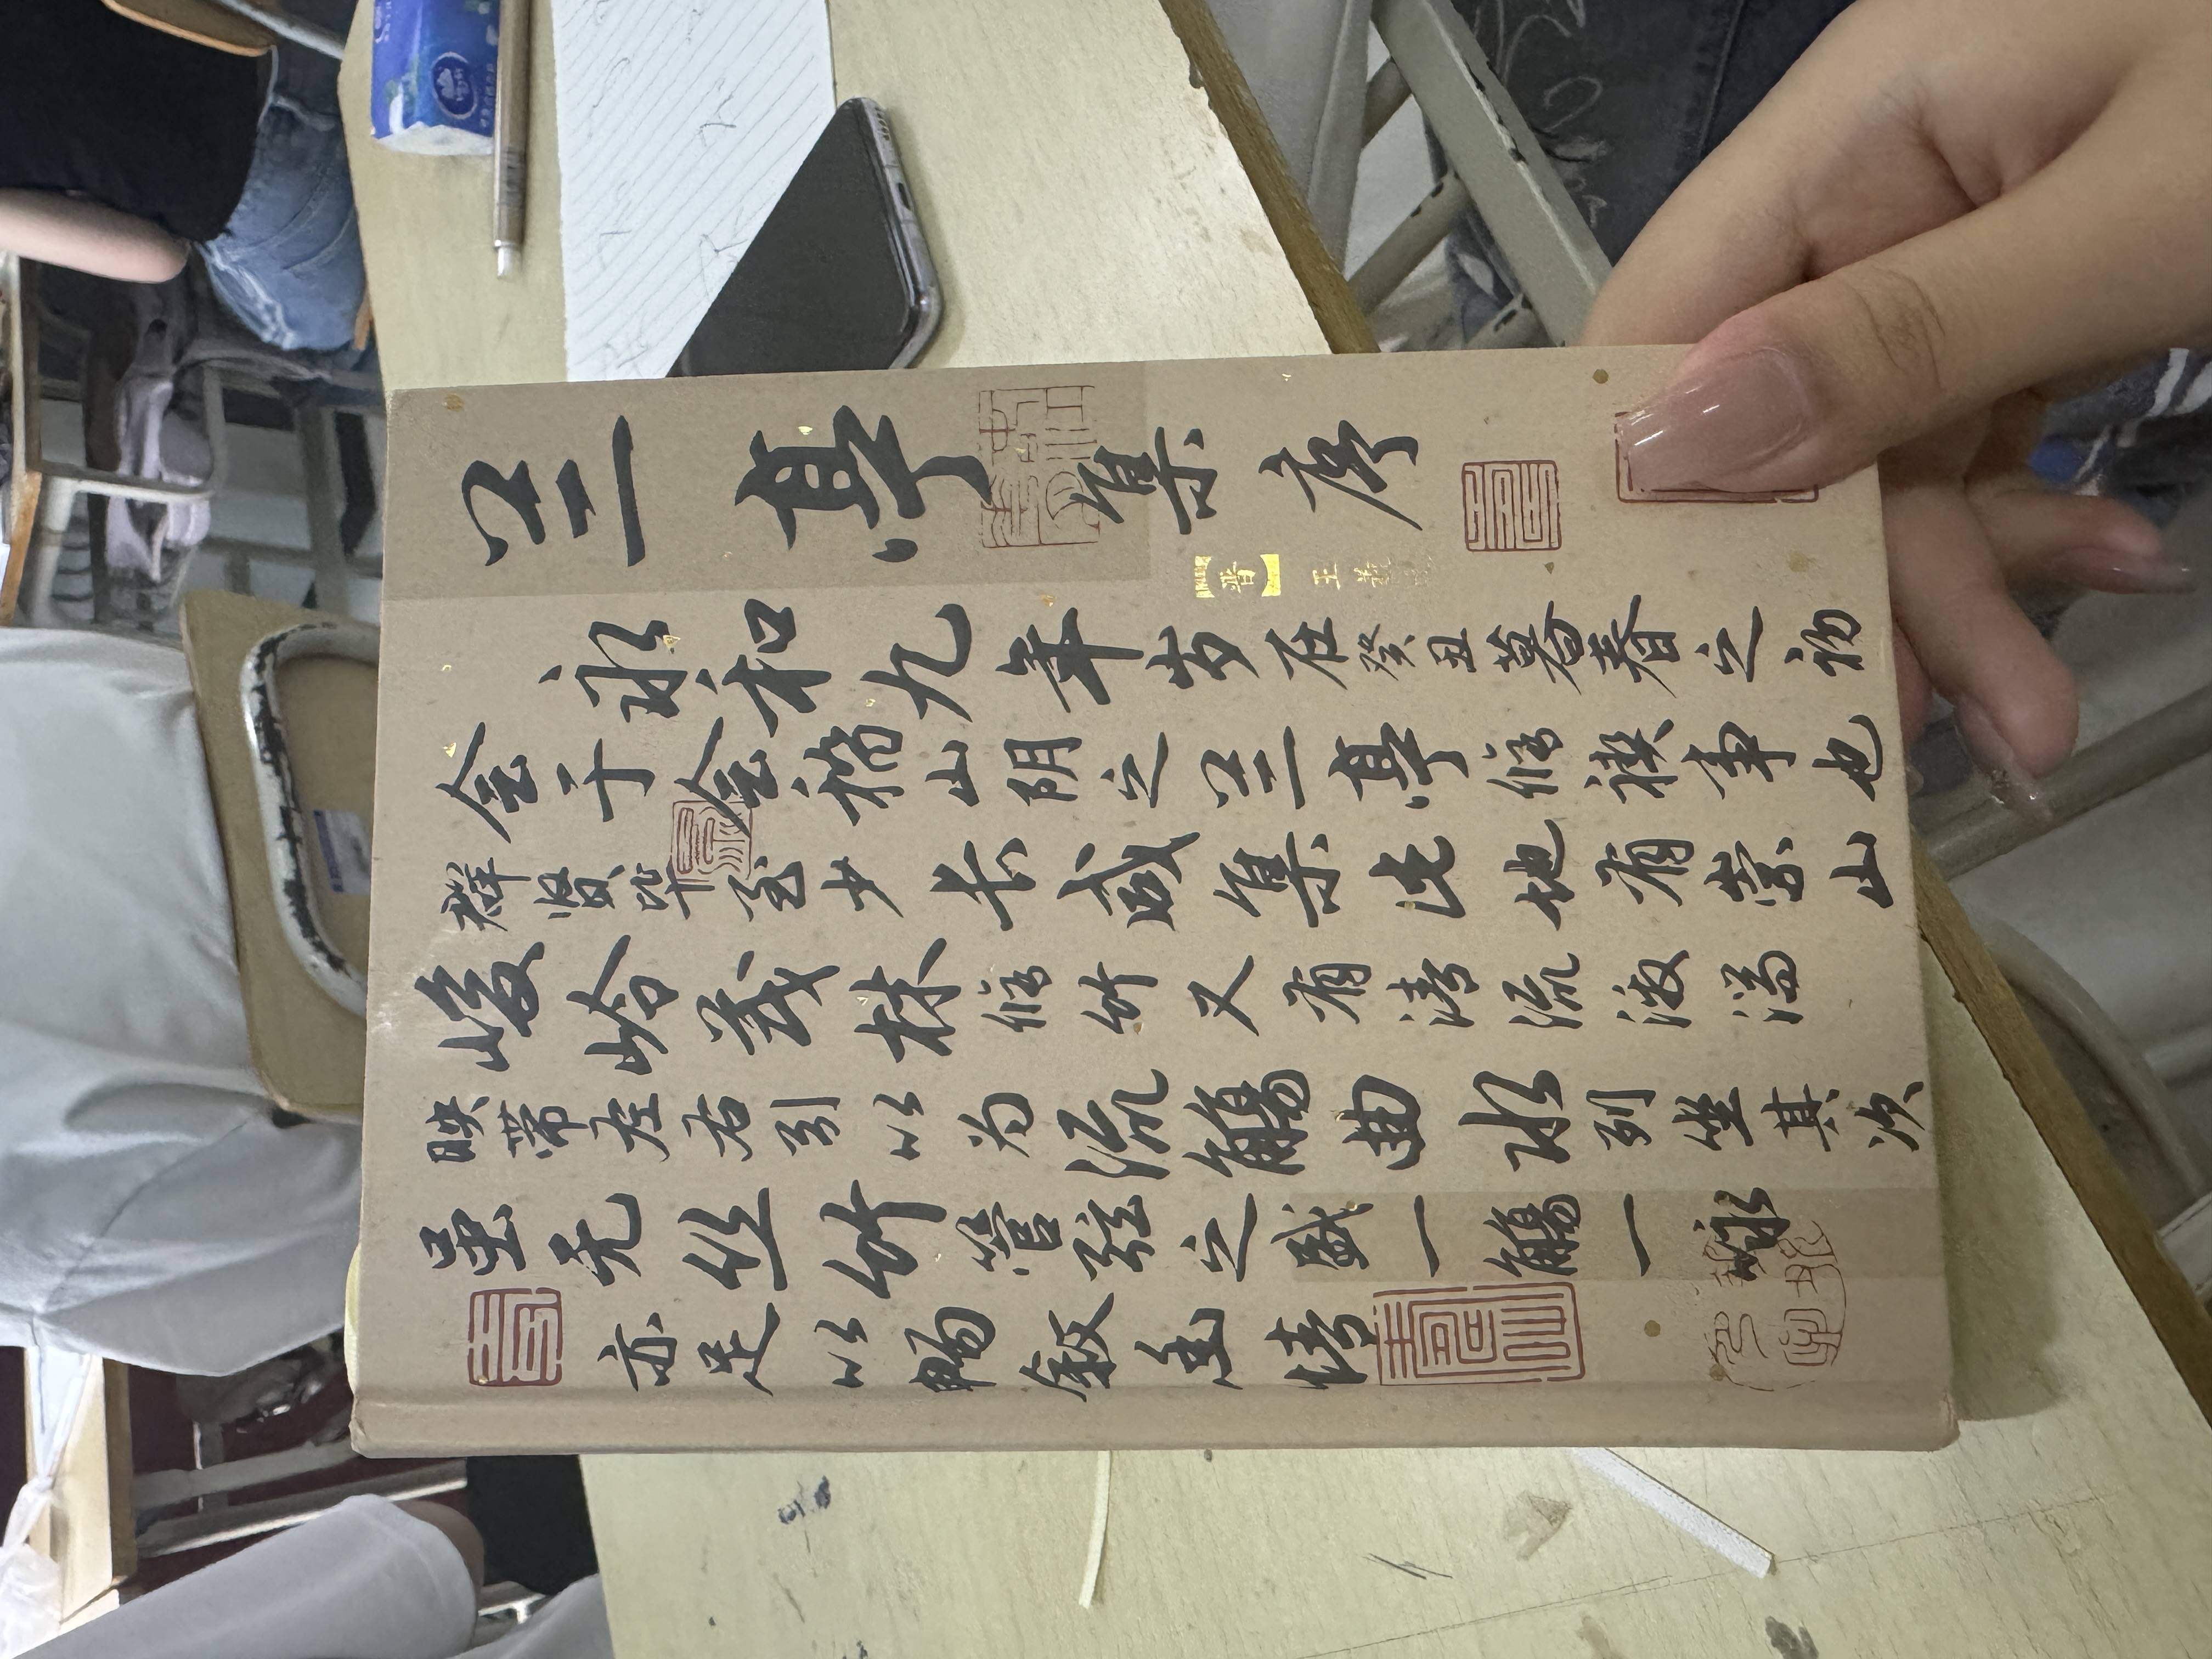 兰亭集序
晋
王羲
永和九年岁在癸丑暮春之初
会于会稽山阴之兰亭修禊事也
群贤毕至少长咸集此地有崇山
峻岭茂林修竹又有清流激湍
映带左右引以为流觞曲水列坐其次
虽无丝竹管弦之盛一觞一咏
亦足以畅叙幽情